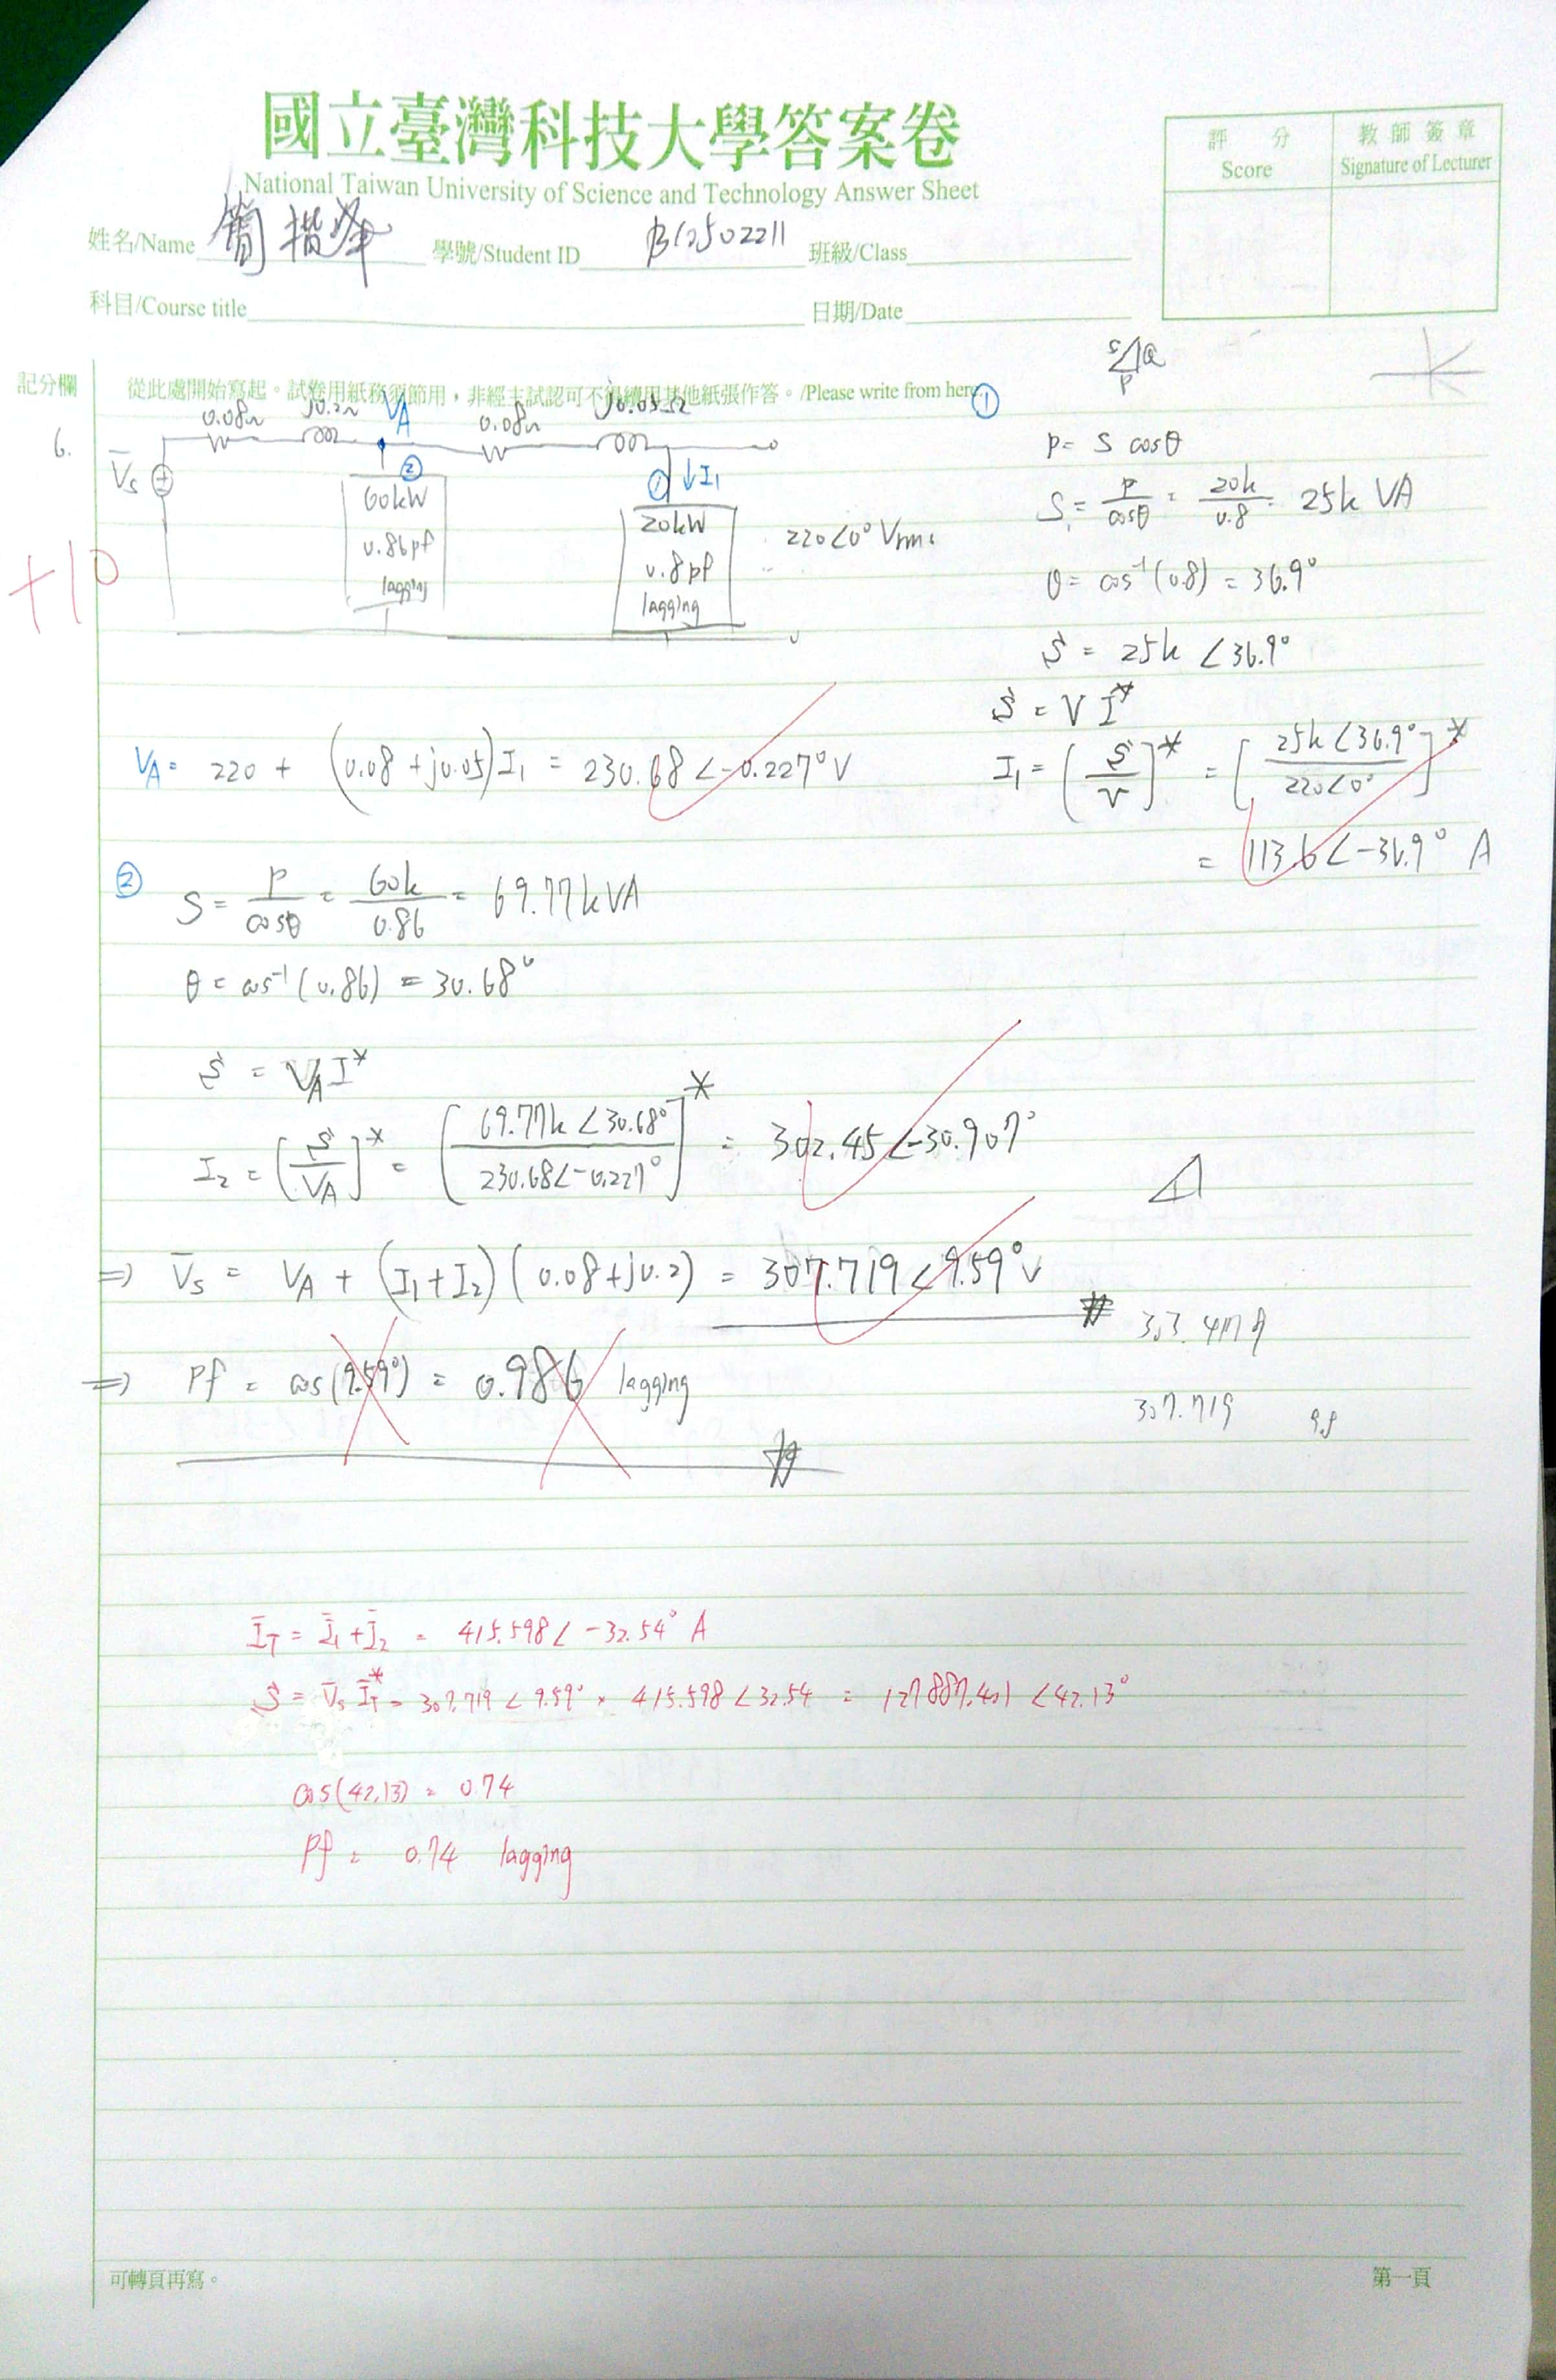 國立臺灣科技大學答案卷
National Taiwan University of Science and Technology Answer Sheet
評分 Score
教師簽章 Signature of Lecturer
姓名/Name 簡 學號/Student ID B12502211 班級/Class
科目/Course title 日期/Date
記分欄
從此處開始寫起。試卷用紙務須節用，非經主試認可不得續用其他紙張作答。/Please write from here.
6.
+10
V̄s
0.08Ω j0.2Ω VA 0.08Ω j0.05Ω
② 60kW 0.86pf lagging
① ↓I₁ 20kW 0.8pf lagging
220∠0° Vrms
S Q P
①
P = S cosθ
S₁ = P/cosθ = 20k/0.8 = 25k VA
θ = cos⁻¹(0.8) = 36.9°
Ṡ = 25k ∠36.9°
Ṡ = V I*
I₁ = (Ṡ/V)* = [25k∠36.9° / 220∠0°]*
= 113.6∠-36.9° A
VA = 220 + (0.08 + j0.05)I₁ = 230.68∠-0.227° V
②
S = P/cosθ = 60k/0.86 = 69.77kVA
θ = cos⁻¹(0.86) = 30.68°
Ṡ = VA I*
I₂ = [Ṡ/VA]* = [69.77k∠30.68° / 230.68∠-0.227°]* = 302.45∠-30.907°
⇒ V̄s = VA + (I₁ + I₂)(0.08 + j0.2) = 307.719∠9.59° V
⇒ Pf = cos(9.59°) = 0.986 lagging
307.719 9.5
ĪT = Ī₁ + Ī₂ = 415.598∠-32.54° A
Ṡ = V̄s ĪT* = 307.719∠9.59° × 415.598∠32.54 = 127887.401∠42.13°
cos(42.13) = 0.74
Pf = 0.74 lagging
可轉頁再寫。
第一頁